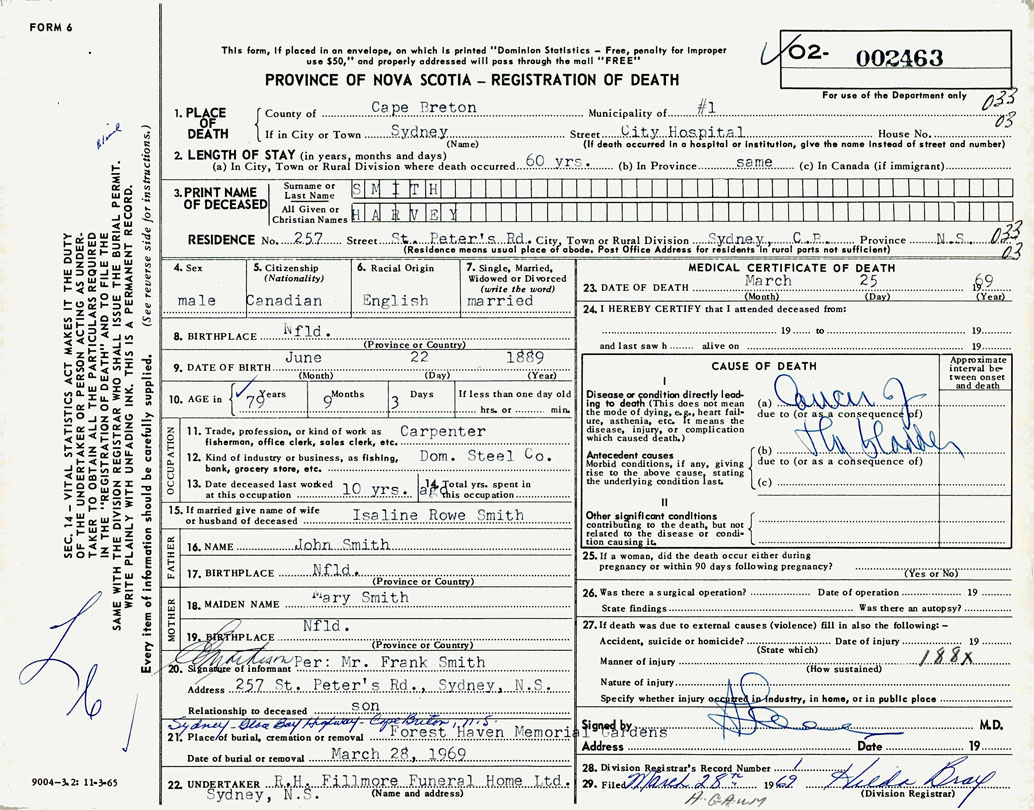 FORM 6
This form, if placed in an envelope, on which is printed "Dominion Statistics – Free, penalty for improper
use $50," and properly addressed will pass through the mail "FREE"
PROVINCE OF NOVA SCOTIA – REGISTRATION OF DEATH
02- 002463
For use of the Department only
033
03
1. PLACE OF DEATH
County of Cape Breton Municipality of #1
If in City or Town Sydney Street City Hospital House No.
(Name) (If death occurred in a hospital or institution, give the name instead of street and number)
2. LENGTH OF STAY (in years, months and days)
(a) In City, Town or Rural Division where death occurred 60 yrs. (b) In Province same (c) In Canada (if immigrant)
3. PRINT NAME OF DECEASED
Surname or Last Name SMITH
All Given or Christian Names HARVEY
RESIDENCE No. 257 Street St. Peter's Rd. City, Town or Rural Division Sydney, C.B. Province N.S.
(Residence means usual place of abode. Post Office Address for residents in rural parts not sufficient)
033
03
4. Sex
male
5. Citizenship (Nationality)
Canadian
6. Racial Origin
English
7. Single, Married, Widowed or Divorced (write the word)
married
8. BIRTHPLACE Nfld.
(Province or Country)
9. DATE OF BIRTH June 22 1889
(Month) (Day) (Year)
10. AGE in 79 Years 9 Months 3 Days If less than one day old
hrs. or min.
OCCUPATION
11. Trade, profession, or kind of work as fisherman, office clerk, sales clerk, etc. Carpenter
12. Kind of industry or business, as fishing, bank, grocery store, etc. Dom. Steel Co.
13. Date deceased last worked at this occupation 10 yrs. ago
14. Total yrs. spent in this occupation
15. If married give name of wife or husband of deceased Isaline Rowe Smith
FATHER
16. NAME John Smith
17. BIRTHPLACE Nfld.
(Province or Country)
MOTHER
18. MAIDEN NAME Mary Smith
19. BIRTHPLACE Nfld.
(Province or Country)
20. Signature of informant Per: Mr. Frank Smith
Address 257 St. Peter's Rd., Sydney, N.S.
Relationship to deceased son
Sydney-Glace Bay Highway - Cape Breton, N.S.
21. Place of burial, cremation or removal Forest Haven Memorial Gardens
Date of burial or removal March 28, 1969
22. UNDERTAKER R.H. Fillmore Funeral Home Ltd.
Sydney, N.S. (Name and address)
MEDICAL CERTIFICATE OF DEATH
23. DATE OF DEATH March 25 1969
(Month) (Day) (Year)
24. I HEREBY CERTIFY that I attended deceased from:
19 to 19
and last saw h alive on 19
CAUSE OF DEATH
Approximate interval between onset and death
I
Disease or condition directly leading to death (This does not mean the mode of dying, e.g., heart failure, asthenia, etc. It means the disease, injury, or complication which caused death.)
(a) Cancer of
due to (or as a consequence of)
Antecedent causes
Morbid conditions, if any, giving rise to the above cause, stating the underlying condition last.
(b) the bladder
due to (or as a consequence of)
(c)
II
Other significant conditions
contributing to the death, but not related to the disease or condition causing it.
25. If a woman, did the death occur either during
pregnancy or within 90 days following pregnancy?
(Yes or No)
26. Was there a surgical operation? Date of operation 19
State findings Was there an autopsy?
27. If death was due to external causes (violence) fill in also the following: –
Accident, suicide or homicide? Date of injury 19
(State which)
Manner of injury 188X
(How sustained)
Nature of injury
Specify whether injury occurred in industry, in home, or in public place
Signed by M.D.
Address Date 19
28. Division Registrar's Record Number 1
29. Filed March 28th 1969 Hilda Bray
(Division Registrar)
SEC. 14 – VITAL STATISTICS ACT MAKES IT THE DUTY
OF THE UNDERTAKER OR PERSON ACTING AS UNDER-
TAKER TO OBTAIN ALL THE PARTICULARS REQUIRED
IN THE "REGISTRATION OF DEATH" AND TO FILE THE
SAME WITH THE DIVISION REGISTRAR WHO SHALL ISSUE THE BURIAL PERMIT.
WRITE PLAINLY WITH UNFADING INK. THIS IS A PERMANENT RECORD.
Every item of information should be carefully supplied. (See reverse side for instructions.)
9004-3.2: 11-3-65